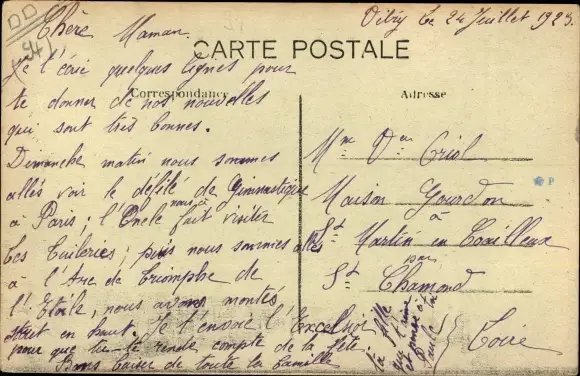 Vitry le 24 Juillet 1923.
Chère Maman
CARTE POSTALE
Je t'écris quelques lignes pour
te donner de nos nouvelles
Correspondance
qui sont très bonnes.
Dimanche matin nous sommes
allés voir le défilé de Gimnastique
à Paris; l'Oncle nous a fait visiter
les Tuileries; puis nous sommes allés
à l'Arc de Triomphe de
l'Etoile, nous avons montés
tout en haut. Je t'envoie l'Excelsior
pour que tu te rende compte de la fête.
Bons baiser de toute la famille
ta fille
qui t'aime
et pense à
toi
Paule
Adresse
Mme Vve Criol
Maison Gourdon
à
St Martin en Coailleux
par
St Chamond
Loire